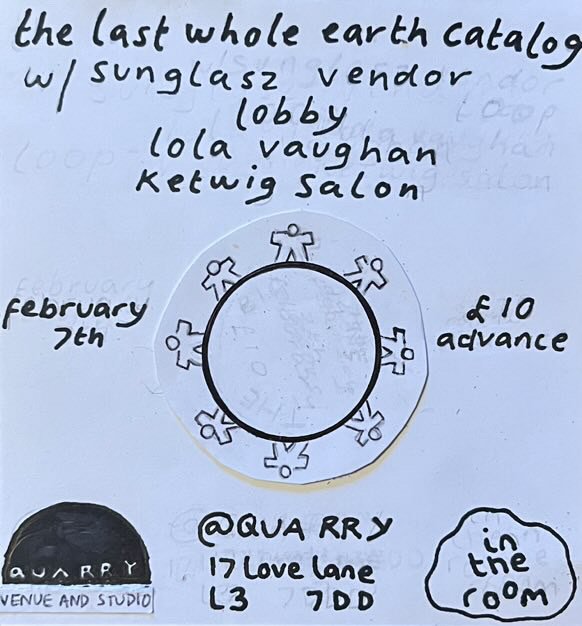 the last whole earth catalog
w/ sunglasz vendor
lobby
lola vaughan
Ketwig Salon
february
7th
£10
advance
@QUARRY
17 Love lane
L3 7DD
QUARRY
VENUE AND STUDIO
in
the
room